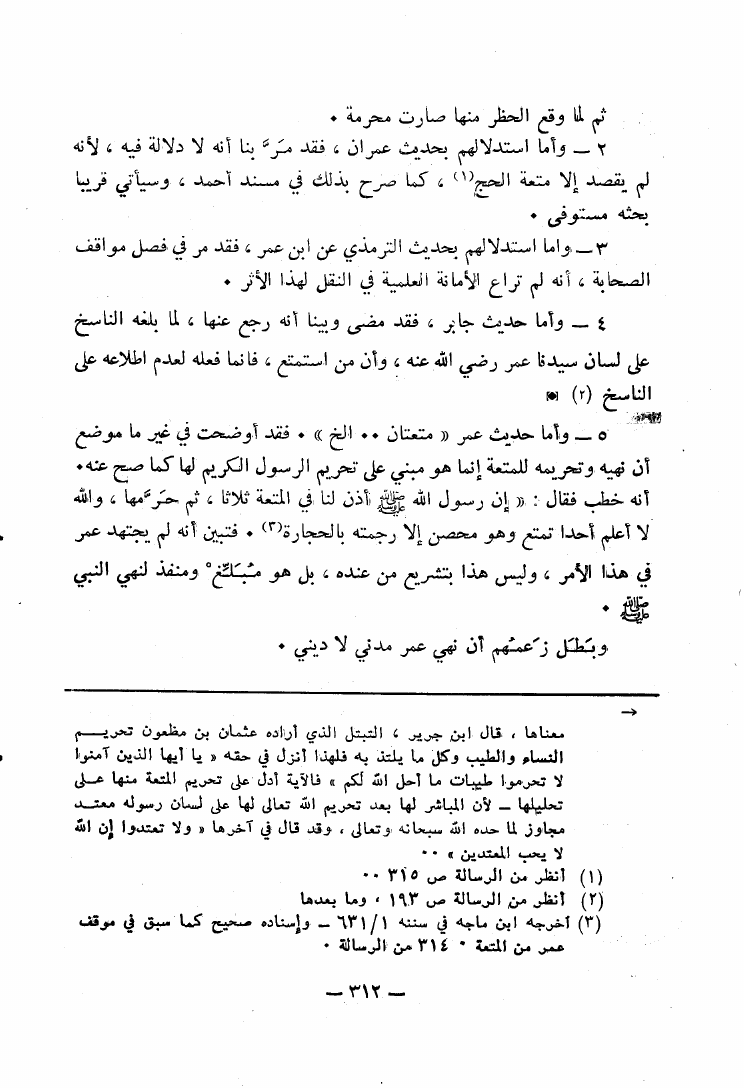 ثم لما وقع الحظر منها صارت محرمة ٠
٢ ــ وأما استدلالهم بحديث عمران ، فقد مرَّ بنا أنه لا دلالة فيه ، لأنه
لم يقصد إلا متعة الحج(١) ، كما صرح بذلك في مسند أحمد ، وسيأتي قريبا
بحثه مستوفى ٠
٣ ــ واما استدلالهم بحديث الترمذي عن ابن عمر ، فقد مر في فصل مواقف
الصحابة ، أنه لم تراع الأمانة العلمية في النقل لهذا الأثر ٠
٤ ــ وأما حديث جابر ، فقد مضى وبينا أنه رجع عنها ، لما بلغه الناسخ
على لسان سيدنا عمر رضي الله عنه ، وأن من استمتع ، فانما فعله لعدم اطلاعه على
الناسخ (٢)
٥ ــ وأما حديث عمر « متعتان ٠٠ الخ » ٠ فقد أوضحت في غير ما موضع
أن نهيه وتحريمه للمتعة إنما هو مبني على تحريم الرسول الكريم لها كما صح عنه٠
أنه خطب فقال : « إن رسول الله ﷺ أذن لنا في المتعة ثلاثا ، ثم حرَّمها ، والله
لا أعلم أحدا تمتع وهو محصن إلا رجمته بالحجارة(٣) ٠ فتبين أنه لم يجتهد عمر
في هذا الأمر ، وليس هذا بتشريع من عنده ، بل هو مُبَلِّغْ ومنفذ لنهي النبي
ﷺ ٠
وبَطَل زعمُهم أن نهي عمر مدني لا ديني ٠
←
معناها ، قال ابن جرير ، التبتل الذي أراده عثمان بن مظعون تحريـــم
النساء والطيب وكل ما يلتذ به فلهذا أنزل في حقه « يا أيها الذين آمنوا
لا تحرموا طيبات ما أحل الله لكم » فالآية أدل على تحريم المتعة منها عـلى
تحليلها ــ لأن المباشر لها بعد تحريم الله تعالى لها على لسان رسوله معتـد
مجاوز لما حده الله سبحانه وتعالى ، وقد قال في آخرها « ولا تعتدوا إن الله
لا يحب المعتدين » ٠٠
(١) أنظر من الرسالة ص ٣١٥ ٠٠
(٢) أنظر من الرسالة ص ١٩٣ ، وما بعدها
(٣) أخرجه ابن ماجه في سننه ١/٦٣١ ــ وإسناده صحيح كما سبق في موقف
عمر من المتعة ٠ ٣١٤ من الرسالة ٠
ــ ٣١٢ ــ